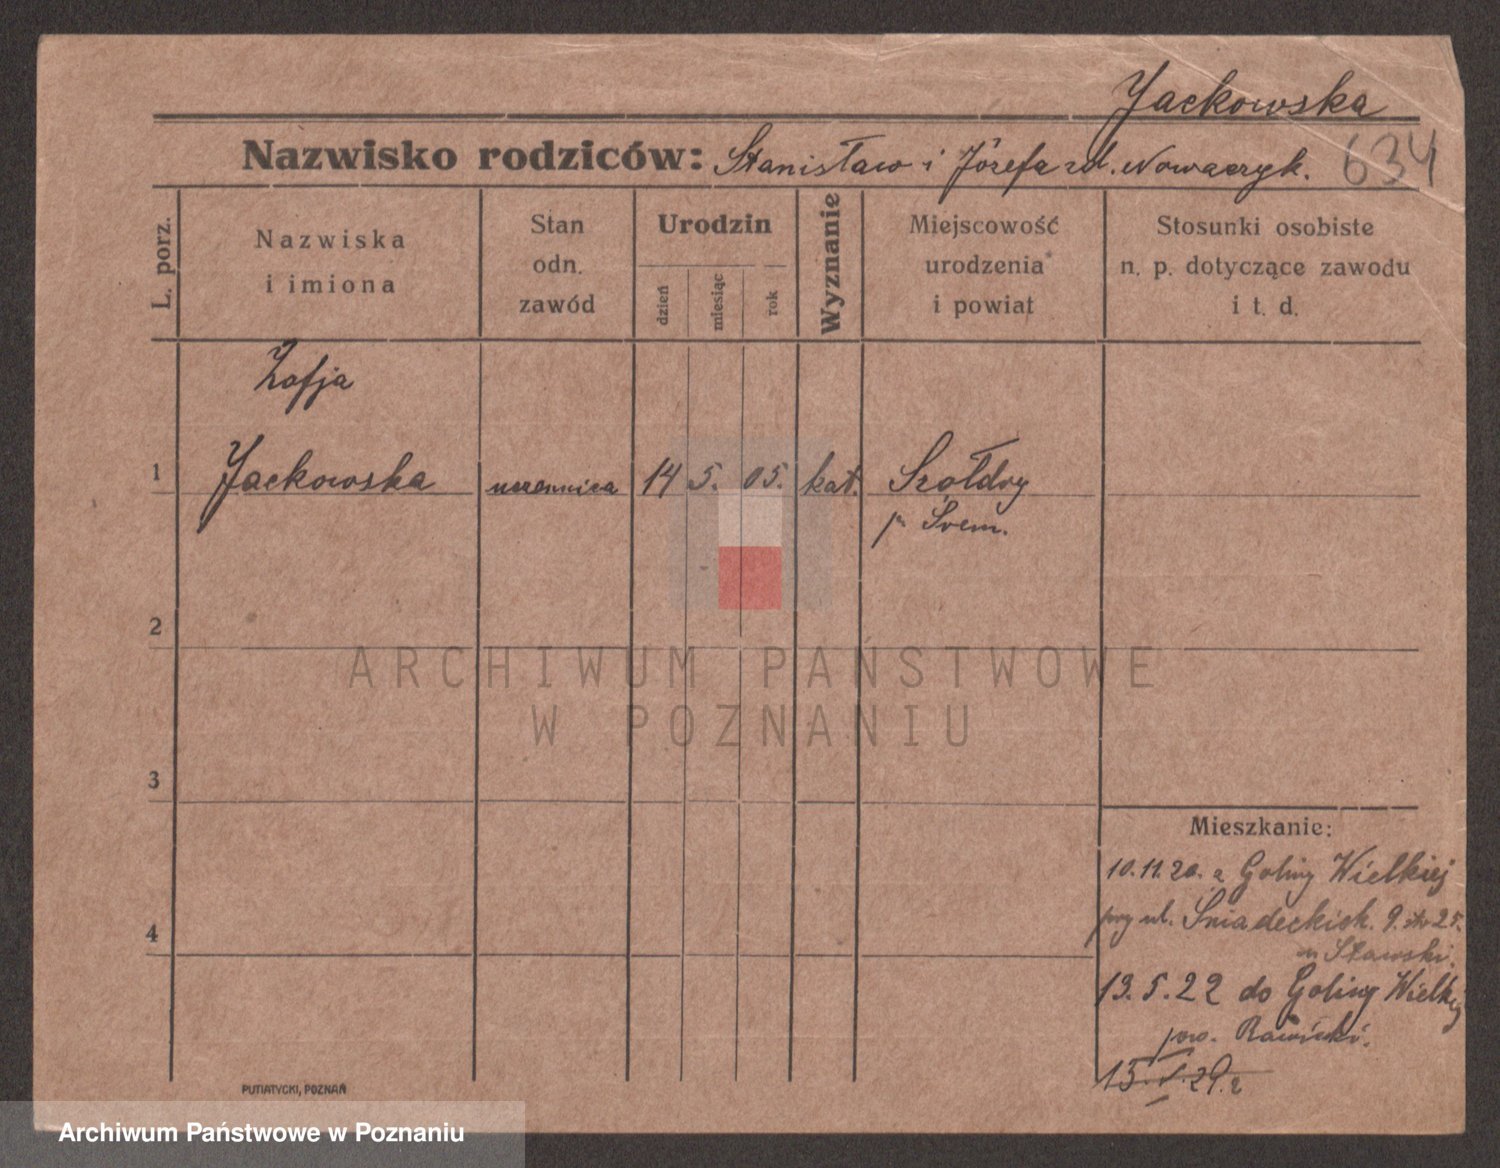 Jackowska
Nazwisko rodziców: Stanisław i Józefa zd. Nowaczyk.
634
L. porz.
Nazwiska
i imiona
Stan
odn.
zawód
Urodzin
dzień
miesiąc
rok
Wyznanie
Miejscowość
urodzenia
i powiat
Stosunki osobiste
n. p. dotyczące zawodu
i t. d.
Zofja
1 Jackowska uczennica 14 5. 05. kat. Szołdry
p. Śrem.
2
3
4
Mieszkanie:
10.11.20. z Goliny Wielkiej
przy ul. Śniadeckich. 9. 25.
Sławski.
13.5.22 do Goliny Wielkiej
pow. Rawicki.
PUTIATYCKI, POZNAŃ
ARCHIWUM PAŃSTWOWE
W POZNANIU
Archiwum Państwowe w Poznaniu